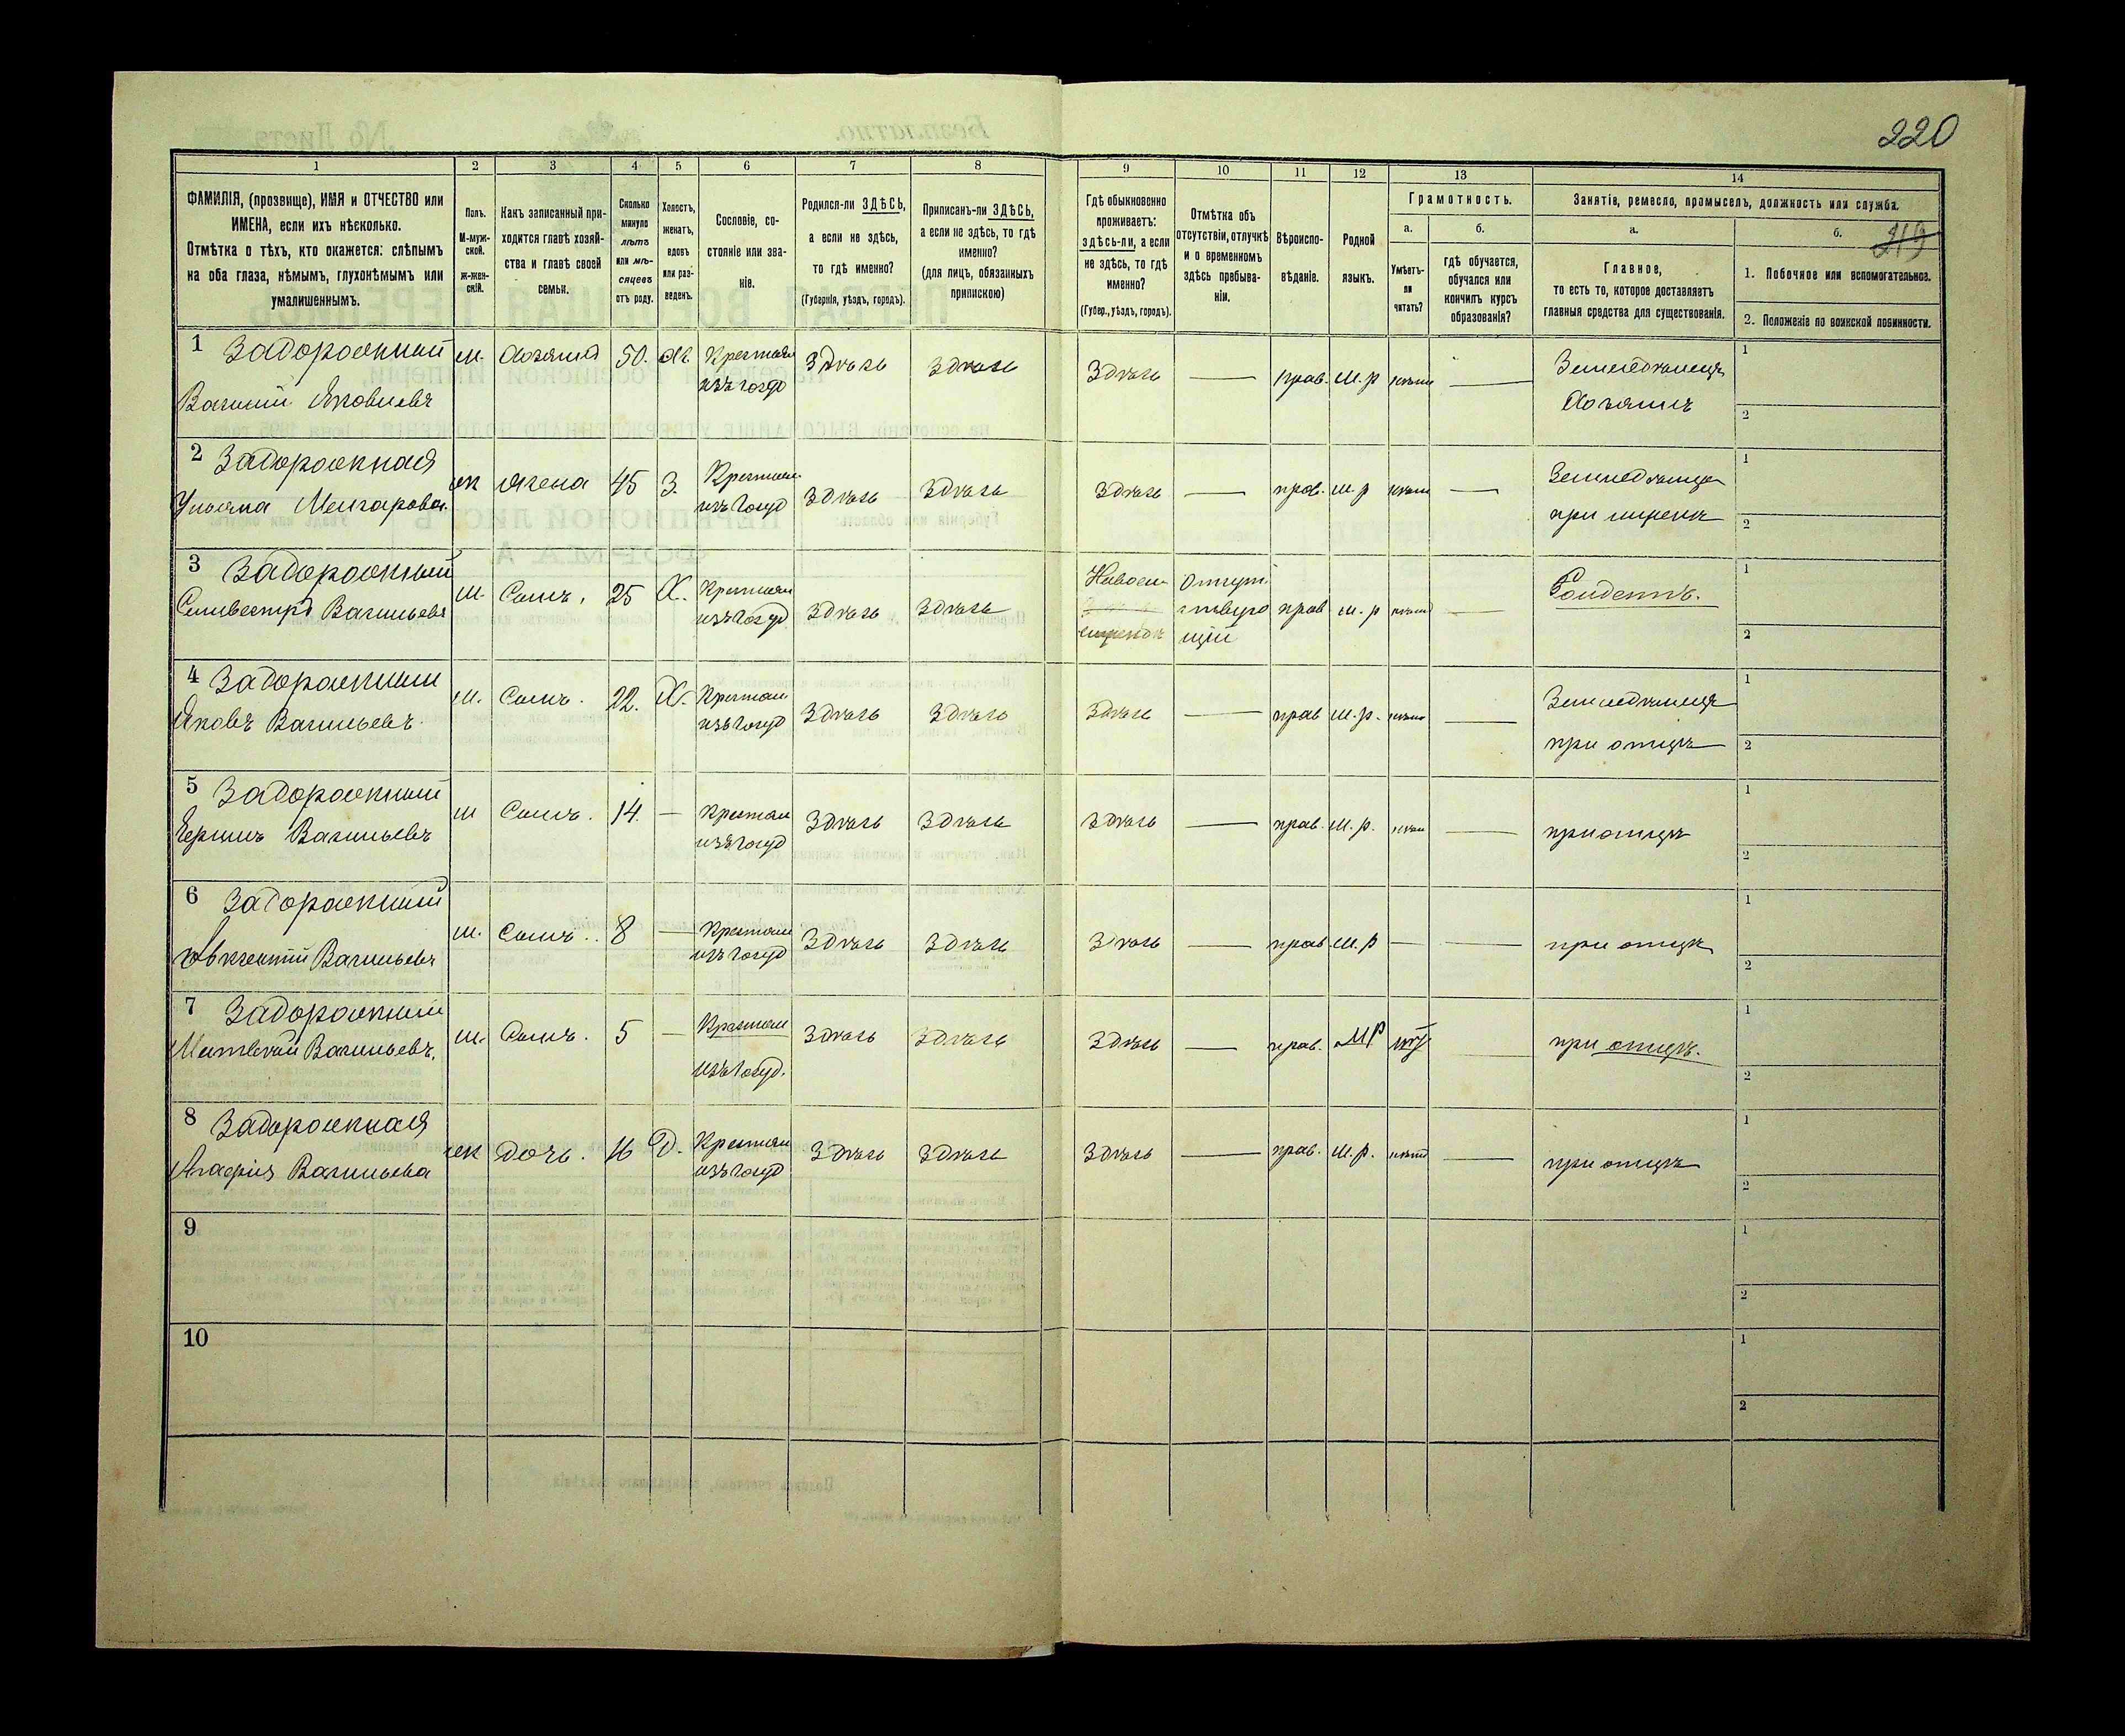 220
1 2 3 4 5 6 7 8 9 10 11 12 13 14
ФАМИЛІЯ, (прозвище), ИМЯ и ОТЧЕСТВО или
ИМЕНА, если ихъ нѣсколько.
Отмѣтка о тѣхъ, кто окажется: слѣпымъ
на оба глаза, нѣмымъ, глухонѣмымъ или
умалишеннымъ.
Полъ.
М-муж-
ской.
ж-жен-
скій.
Какъ записанный при-
ходится главѣ хозяй-
ства и главѣ своей
семьи.
Сколько
минуло
лѣтъ
или мѣ-
сяцевъ
отъ роду.
Холостъ,
женатъ,
вдовъ
или раз-
веденъ.
Сословіе, со-
стояніе или зва-
ніе.
Родился-ли ЗДѢСЬ,
а если не здѣсь,
то гдѣ именно?
(Губернія, уѣздъ, городъ).
Приписанъ-ли ЗДѢСЬ,
а если не здѣсь, то гдѣ
именно?
(для лицъ, обязанныхъ
припискою)
Гдѣ обыкновенно
проживаетъ:
здѣсь-ли, а если
не здѣсь, то гдѣ
именно?
(Губер., уѣздъ, городъ).
Отмѣтка объ
отсутствіи, отлучкѣ
и о временномъ
здѣсь пребыва-
ніи.
Вѣроиспо-
вѣданіе.
Родной
языкъ.
Грамотность.
а.
Умѣетъ-
ли
читать?
б.
гдѣ обучается,
обучался или
кончилъ курсъ
образованія?
Занятіе, ремесло, промыселъ, должность или служба.
а.
Главное,
то есть то, которое доставляетъ
главныя средства для существованія.
б.
219
1. Побочное или вспомогательное.
2. Положеніе по воинской повинности.
1 Задорожний м. Хозяинъ 50. Ж. Крестьян Здѣсь Здѣсь Здѣсь — прав. м.р нѣтъ — Земледѣлецъ 1
Василий Яковлевъ изъ госуд Хозяинъ 2
2 Задорожная ж жена 45 З. Крестьян Здѣсь Здѣсь Здѣсь — прав. м.р нѣтъ — Земледѣлица 1
Ульяна изъ госуд при 2
3 Задорожний м. Сынъ. 25 Х. Крестьян Здѣсь Здѣсь прав м.р нѣтъ — 1
Сильвестръ Васильевъ изъ госуд Отсут-
ствую
щій
Солдатъ. 2
4 Задорожний м. Сынъ. 22. Х. Крестьян Здѣсь Здѣсь Здѣсь — прав м.р. нѣтъ — Земледѣлецъ 1
Яковъ Васильевъ. изъ госуд при отцѣ 2
5 Задорожний м Сынъ. 14. — Крестьян Здѣсь Здѣсь Здѣсь — прав. м.р. нѣтъ — при отцѣ 1
Васильевъ изъ госуд 2
6 Задорожний м. Сынъ. 8 — Крестьян Здѣсь Здѣсь Здѣсь — прав. м.р — — при отцѣ 1
Авксентий Васильевъ изъ госуд 2
7 Задорожний м. Сынъ. 5 — Крестьян Здѣсь Здѣсь Здѣсь — прав. МР — при отцѣ. 1
Матвѣй Васильевъ. изъ госуд. 2
8 Задорожная ж Дочь. 16 Д. Крестьян Здѣсь Здѣсь Здѣсь — прав. м.р. нѣтъ — при отцѣ 1
Агафія Васильева изъ госуд 2
9 1
2
10 1
2